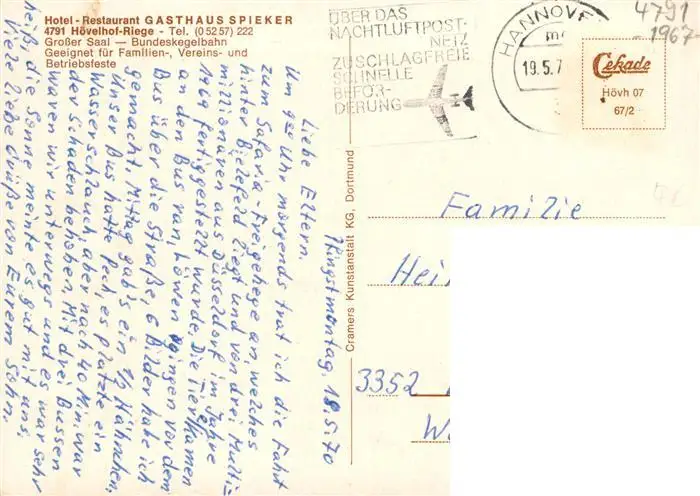 Hotel - Restaurant GASTHAUS SPIEKER
4791 Hövelhof-Riege - Tel. (0 52 57) 222
Großer Saal — Bundeskegelbahn
Geeignet für Familien-, Vereins- und
Betriebsfeste
Pfingstmontag, 18.5.70
Liebe Eltern.
Um 9oo Uhr morgends trat ich die Fahrt
zum Safaria-Freigehege an, welches
hinter Bielefeld liegt und von drei Multi=
millionären aus Düsseldorf im Jahre
1969 fertiggestellt wurde. Die Tiere kamen
an den Bus ran, Löwen gingen vor dem
Bus über die Straße, 6 Bilder habe ich
gemacht. Mittag gab's ein 1/2 Hähnchen.
Unser Bus hatte Pech, es platzte ein
Wasserschlauch aber nach 40 Min. war
der Schaden behoben. Mit drei Bussen
waren wir unterwegs und es war sehr
heiß, die Sonne meinte es gut mit uns.
Viele liebe Grüße von Eurem Sohn.
Cramers Kunstanstalt KG, Dortmund
ÜBER DAS
NACHTLUFTPOST-
NETZ
ZUSCHLAGFREIE
SCHNELLE
BEFÖR-
DERUNG
HANNOVE
19.5.7
4791
-1967-
Cekade
Hövh 07
67/2
Familie
Hei
3352